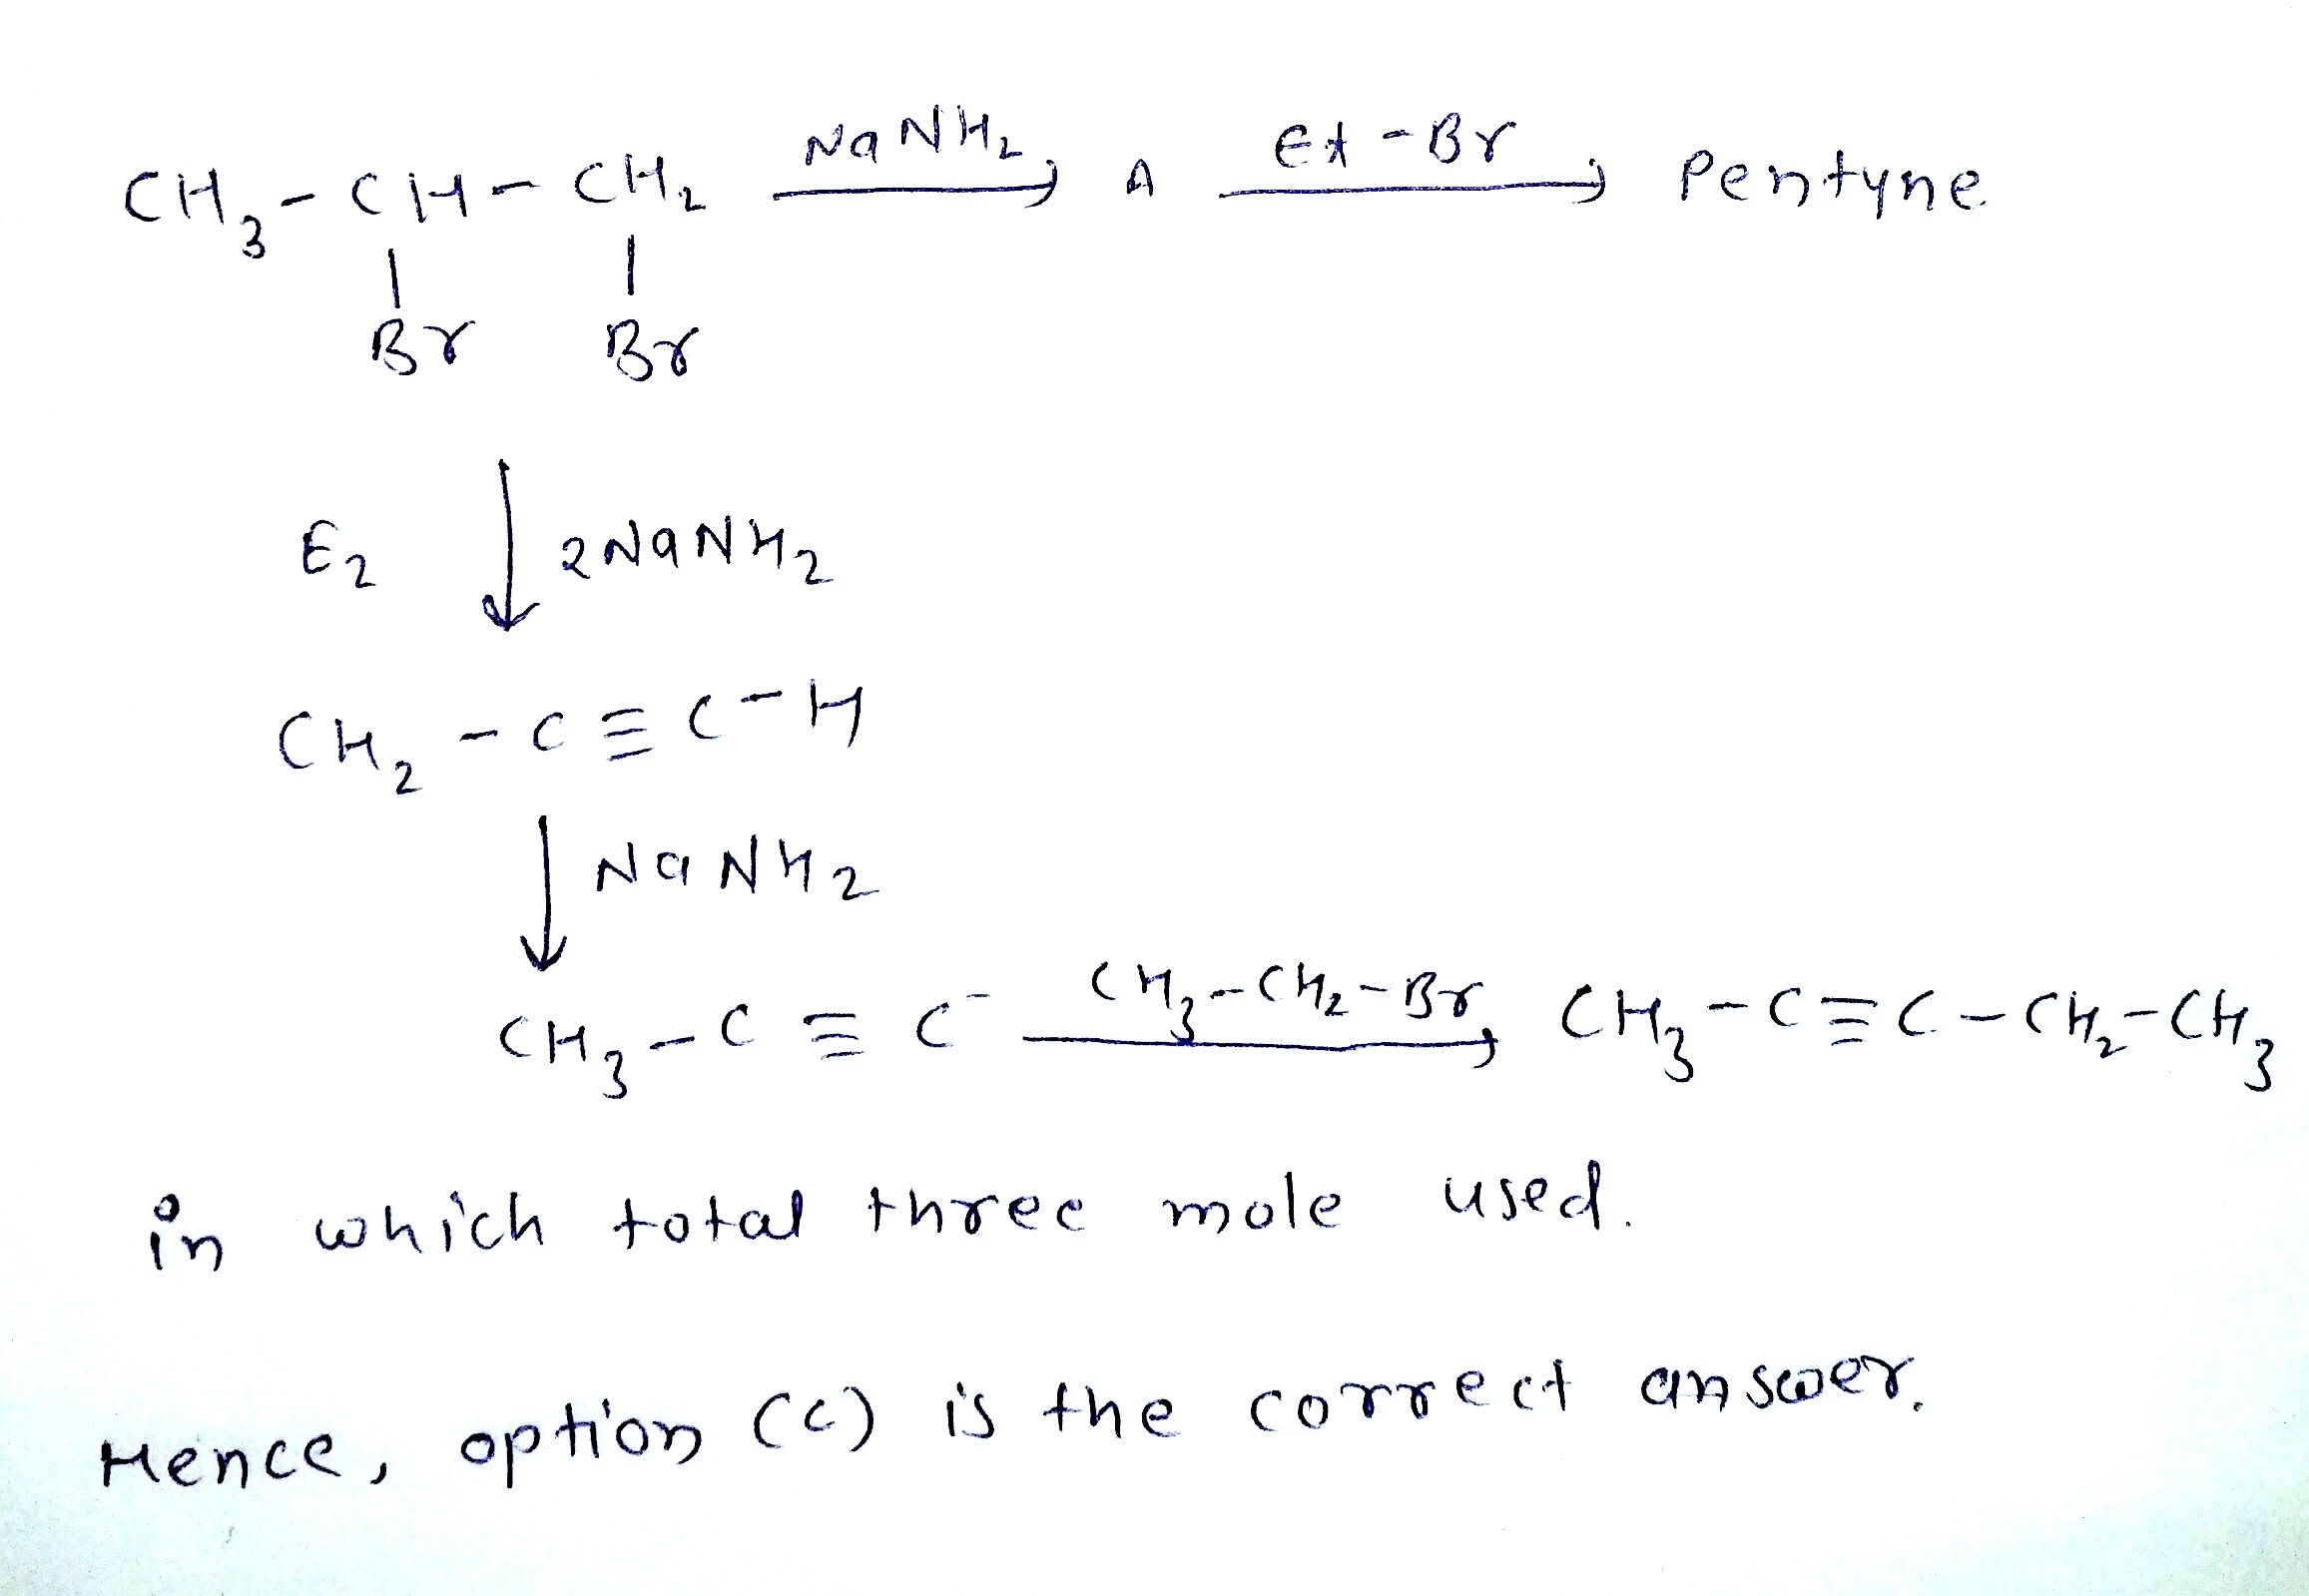 CH₃-CH-CH₂ NaNH₂ A Et-Br Pentyne
Br Br
E₂ 2NaNH₂
CH₂-C≡C-H
NaNH₂
CH₃-C≡C⁻ CH₃-CH₂-Br CH₃-C≡C-CH₂-CH₃
in which total three mole used.
Hence, option (c) is the correct answer.